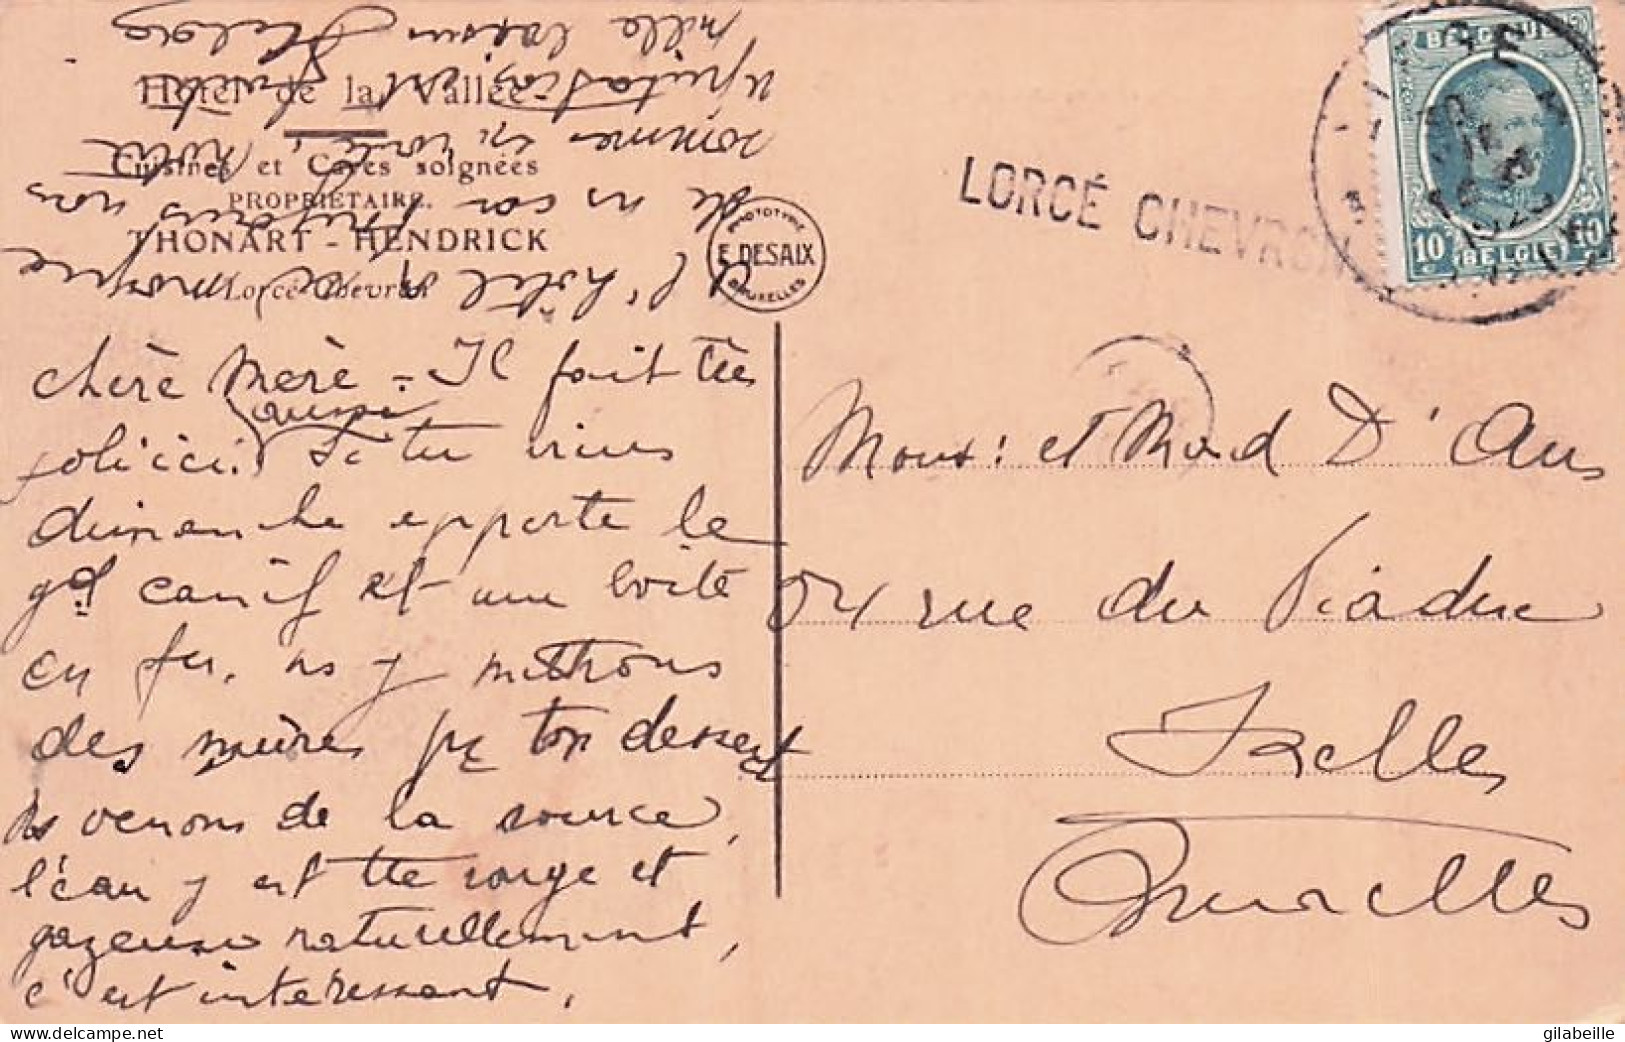 Hôtel de la Vallée
Cuisines et Caves soignées
PROPRIÉTAIRE.
THONART - HENDRICK
Lorcé-Chevron
PHOTOTYPIE
E. DESAIX
BRUXELLES
LORCÉ CHEVRON
BELGIQUE
10 c
BELGIË
10 c
chère Mère - Il fait très
aussi
joli ici. Si tu viens
dimanche apporte le
gd canif et une boite
en fer, ns y mettrons
des mûres pr ton dessert
Ns venons de la source,
l'eau y est tte rouge et
gazeuse naturellement,
c'est intéressant,
et l'hôtel
nous
sommes
notre
mille
Mons: et Mad D'Ans
54 rue du Viaduc
Ixelles
Bruxelles
gilabeille